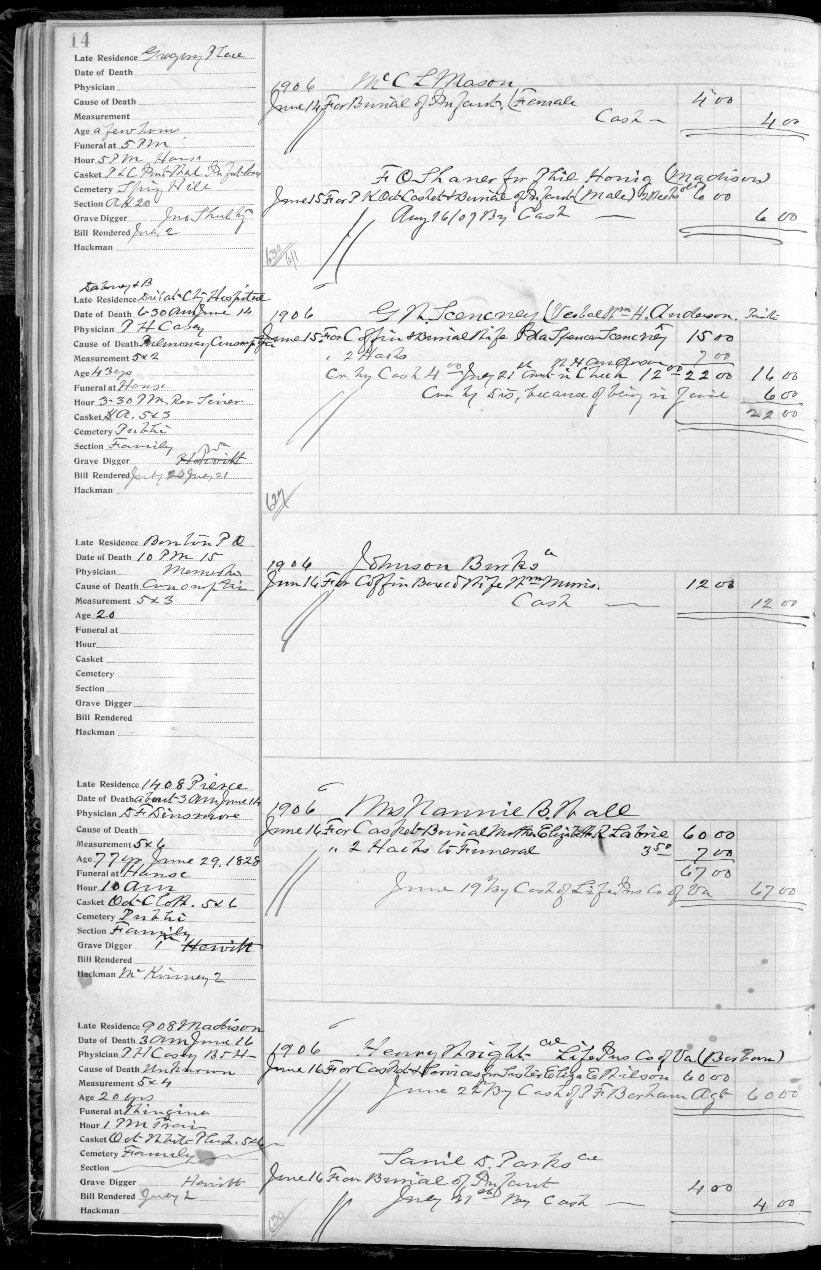 14
Late Residence Gregory Place
Date of Death
Physician
Cause of Death
Measurement
Age a few hours
Funeral at 5 PM
Hour 5 PM House
Casket
Cemetery Spring Hill
Section
Grave Digger Jno
Bill Rendered July 2
Hackman
1906 McC L Mason
June 14 For Burial of Infant. (Female 4 00
Cash — 4 00
F O Shaner for Phil Honig (Madison)
June 15 For P K Oct Casket & Burial of Infant (Male) 6 00
Aug 16/07 By Cash — 6 00
630/611
Dabney & B
Late Residence City Hospital
Date of Death 6 30 am June 14
Physician T H Casey
Cause of Death Pulmonary Consumption
Measurement 5x2
Age 43 yrs
Funeral at House
Hour 3-30 PM
Casket 5x3
Cemetery Public
Section Family
Grave Digger Hewitt
Bill Rendered July 21
Hackman
1906 G N Scencney (Verbal Wm H. Anderson.
June 15 For Coffin & Burial Wife Ida Spencer 15 00
" 2 Hacks 7 00
Cr By Cash 4 00 July 21st Check 12 00 22 00 16 00
Cr by Dis, because of being in 6 00
22 00
627
Late Residence
Date of Death 10 PM 15
Physician
Cause of Death Consumption
Measurement 5x3
Age 20
Funeral at
Hour
Casket
Cemetery
Section
Grave Digger
Bill Rendered
Hackman
1906 Johnson Burks
Jun 16 For Coffin Boxed Wife Wm Mimis. 12 00
Cash — 12 00
Late Residence 1408 Pierce
Date of Death about 3 am June 14
Physician D F Dinsmore
Cause of Death
Measurement 5x6
Age 77 yrs June 29. 1828
Funeral at House
Hour 10 am
Casket Oct Cloth. 5x6
Cemetery Public
Section Family
Grave Digger Hewitt
Bill Rendered
Hackman McKinney 2
1906 Mrs Nannie B. Wall
June 16 For Casket & Burial Mother Elizabeth R Labrie 60 00
" 2 Hacks to Funeral 3 50 7 00
67 00
June 19th By Cash of Life Ins Co of Va 67 00
Late Residence 908 Madison
Date of Death 3 am June 16
Physician T H Casey
Cause of Death Unknown
Measurement 5x4
Age 20 yrs
Funeral at
Hour 1 PM Train
Casket Oct White Plush. 5x6
Cemetery Family
Section
Grave Digger Hewitt
Bill Rendered July 2
Hackman
1906 Henry Wright Life Ins Co of Va (Barham)
June 16 For Casket & Services for Sister Eliza E Wilson 60 00
June By Cash of T F Barham Agt 60 00
Sanil D. Parks
June 16 For Burial of Infant 4 00
July 21st By Cash — 4 00